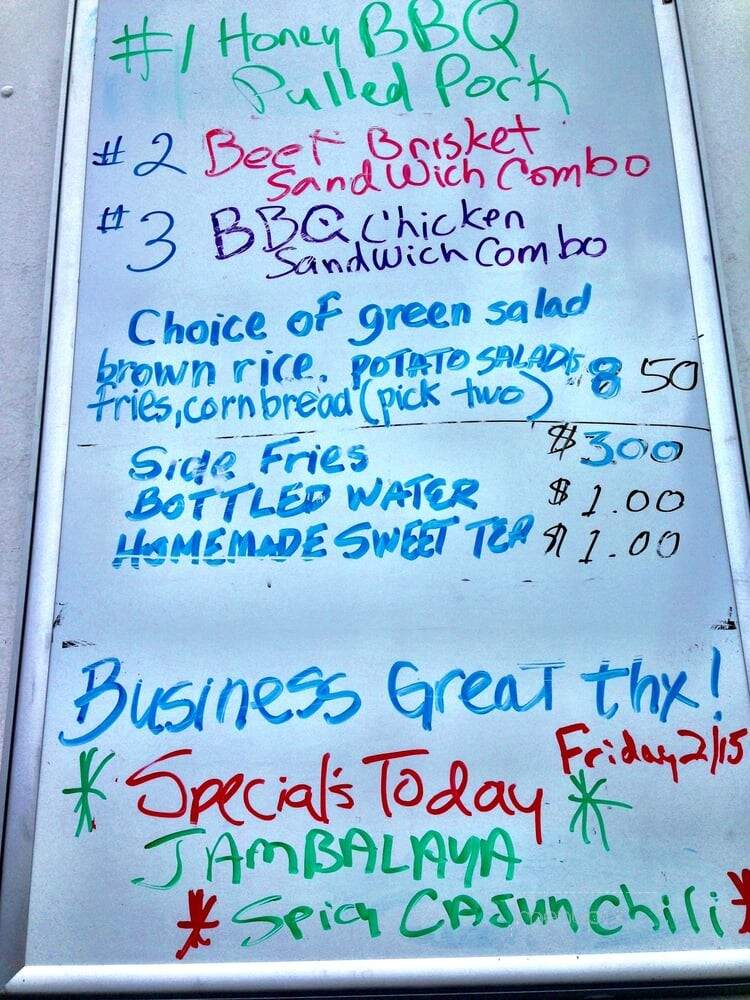 #1 Honey BBQ
Pulled Pork
#2 Beef Brisket
Sandwich Combo
#3 BBQ Chicken
Sandwich Combo
Choice of green salad
brown rice. POTATO SALAD
fries, cornbread (pick two) $8 50
Side Fries $300
BOTTLED WATER $1.00
HOMEMADE SWEET TEA $1.00
Business Great thx!
Friday 2/15
* Special's Today *
JAMBALAYA
* Spicy CAJUN Chili *